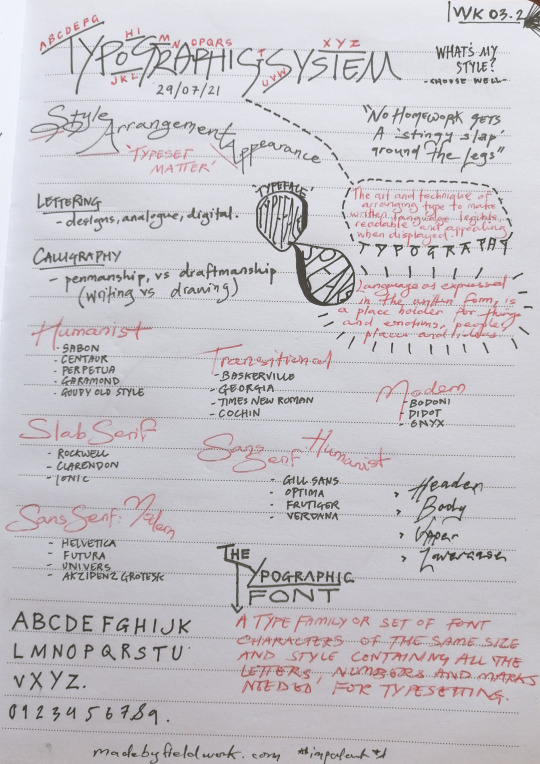 WK 03.2
ABCDEFG
HI
M
N
OPQRS
T
XYZ
TYPOGRAPHIC SYSTEM
JKL
UVW
29/07/21
WHAT'S MY
STYLE?
- CHOOSE WELL -
Style
Arrangement
Appearance
'TYPESET
MATTER'
"No HOMEWORK GETS
A 'stingy slap'
around the legs"
LETTERING
- designs, analogue, digital.
CALLIGRAPHY
- penmanship, vs draftmanship
(writing vs drawing)
'TYPEFACE'
The art and technique of
arranging type to make
written language legible,
readable and appealing
when displayed.
TYPOGRAPHY
Language as expressed
in the written form, is
a place holder for things
and emotions, people,
places and ideas.
Humanist
- SABON
- CENTAUR
- PERPETUA
- GARAMOND
- GOUDY OLD STYLE
Transitional
- BASKERVILLE
- GEORGIA
- TIMES NEW ROMAN
- COCHIN
Modern
- BODONI
- DIDOT
- ONYX
Slab Serif
- ROCKWELL
- CLARENDON
- IONIC
Sans Serif Humanist
- GILL SANS
- OPTIMA
- FRUTIGER
- VERDANA
> Header
> Body
> Upper
> Lowercase
Sans Serif: Modern
- HELVETICA
- FUTURA
- UNIVERS
- AKZIDENZ GROTESK
THE
TYPOGRAPHIC
FONT
ABCDEFGHIJK
LMNOPQRSTU
VXYZ.
0123456789.
A TYPE FAMILY OR SET OF FONT
CHARACTERS OF THE SAME SIZE
AND STYLE CONTAINING ALL THE
LETTERS, NUMBERS AND MARKS
NEEDED, FOR TYPESETTING.
madebyfieldwork.com *important*